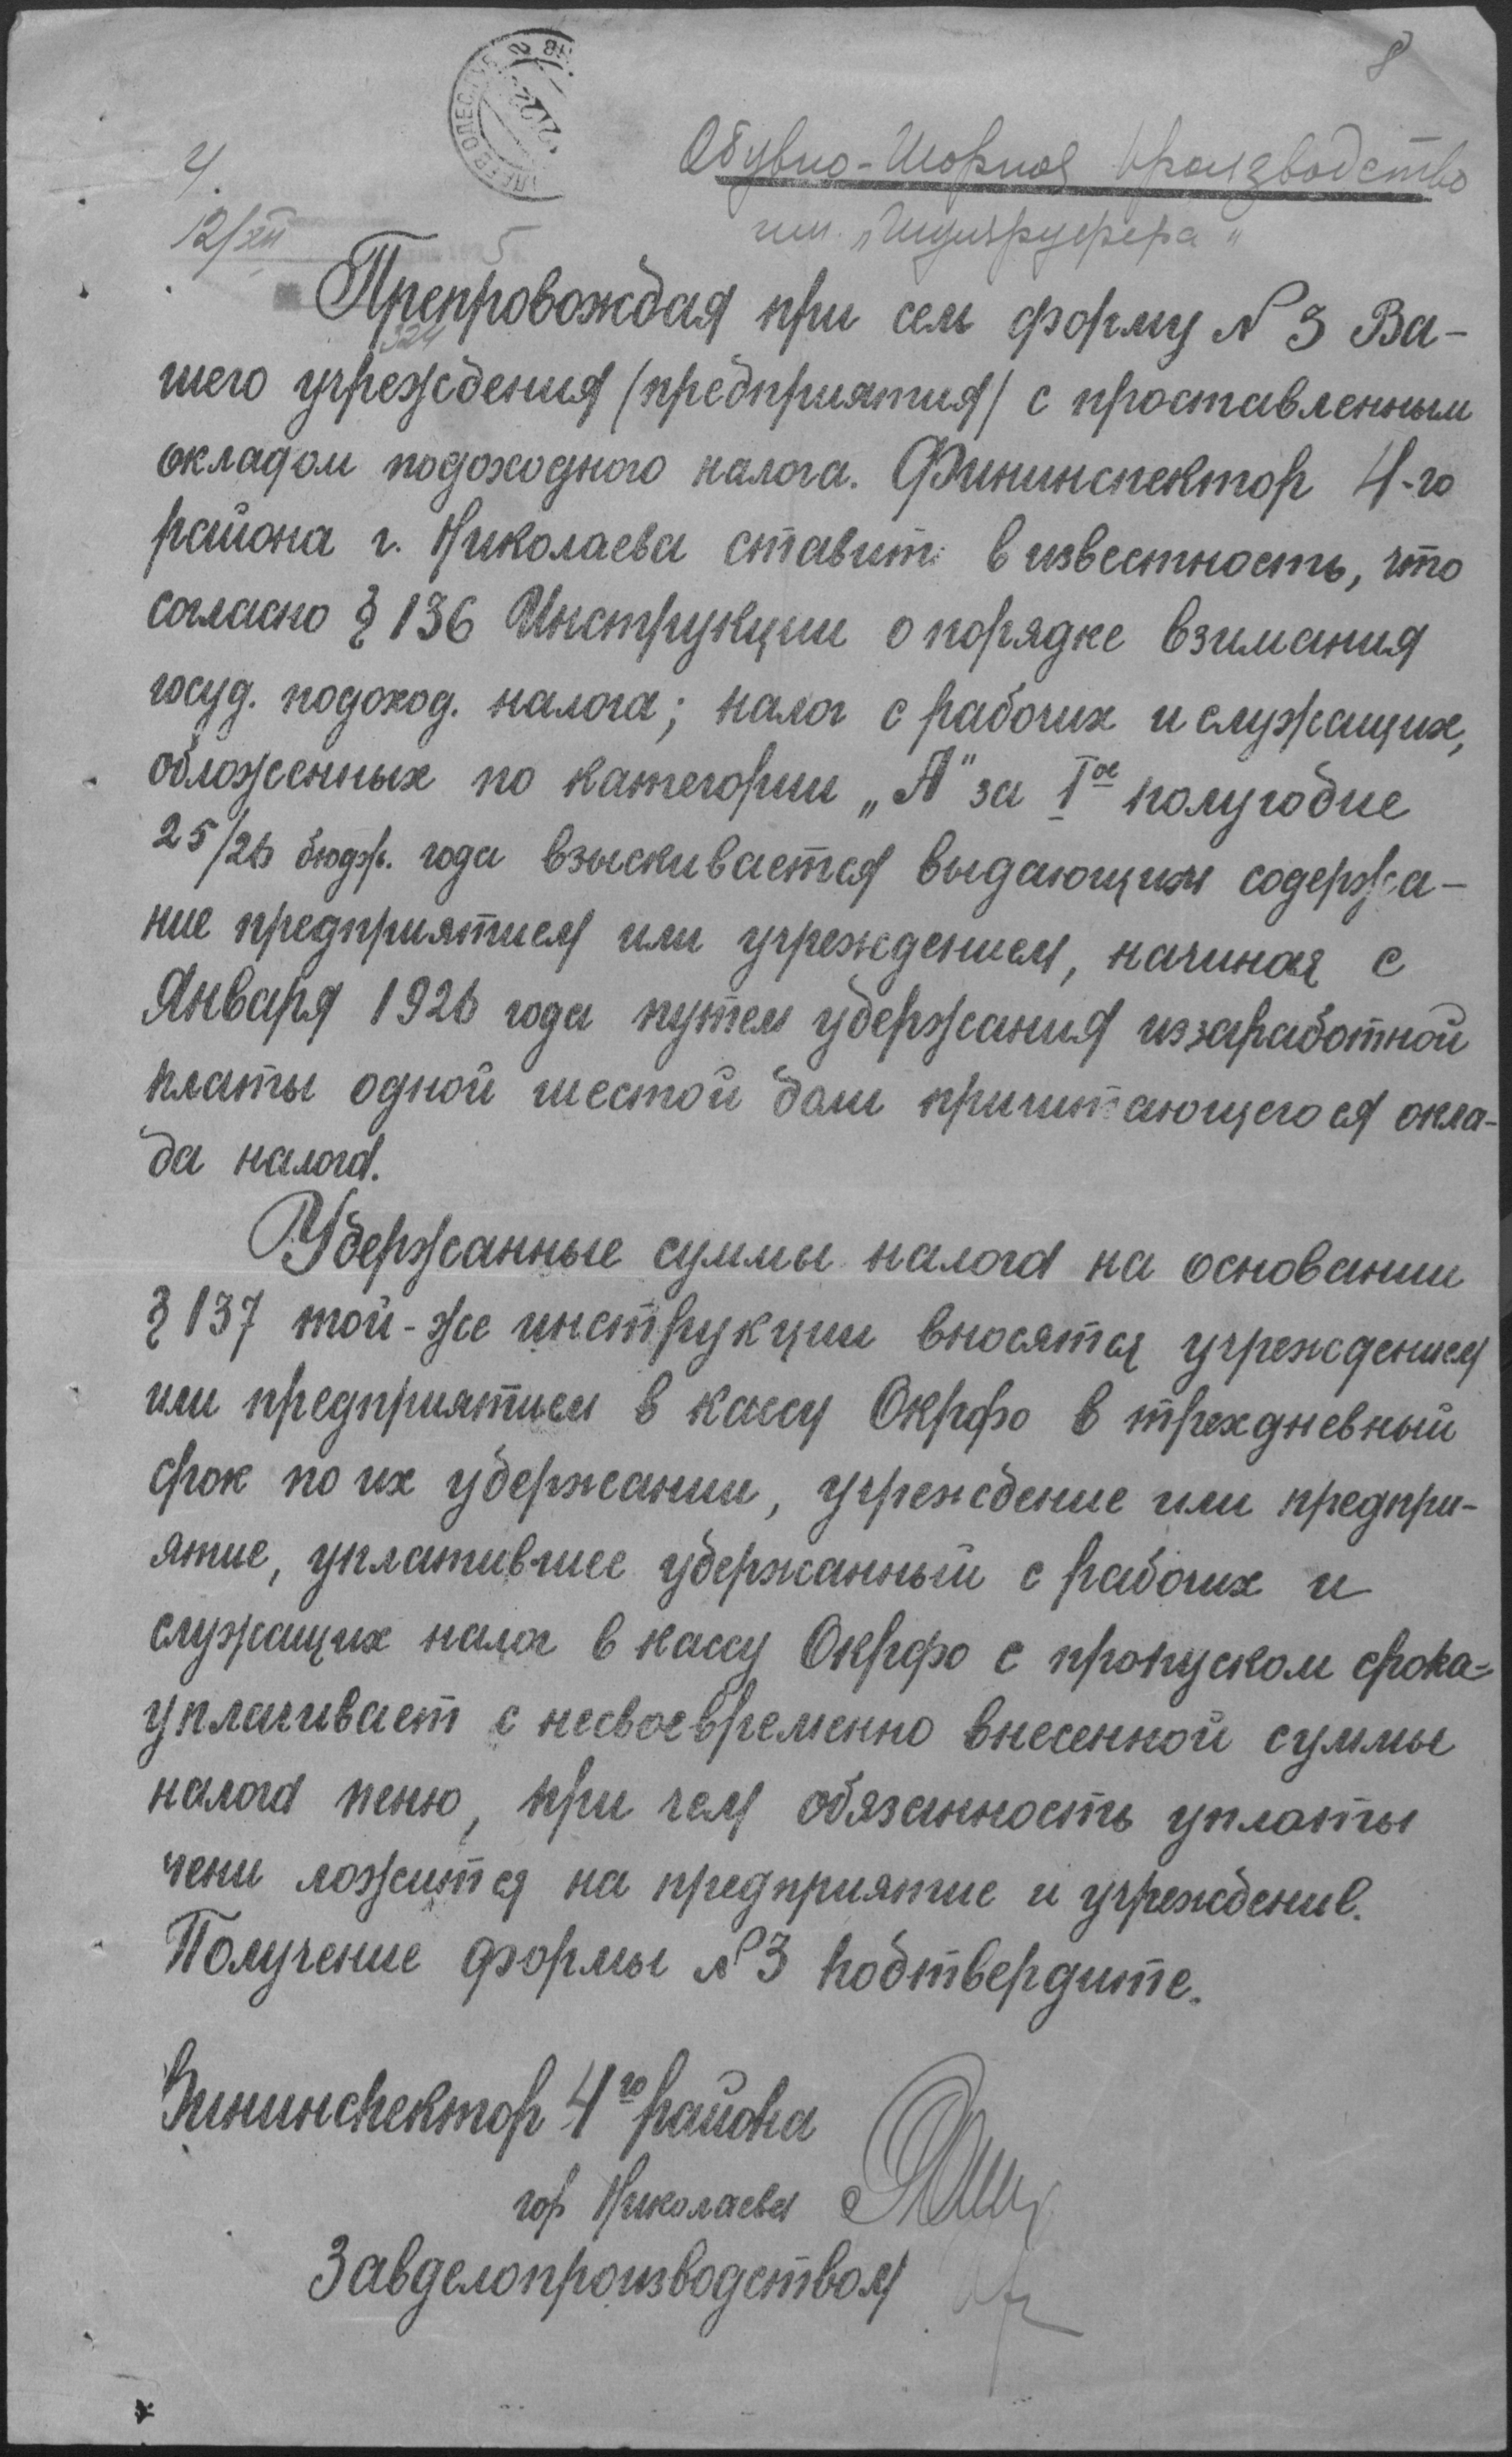 8
4.
12/XII
5
Обувно-Шорное производство
им. „Индуррухера"
324
Препровождая при сем форму №3 Ва-
шего учреждения (предприятия) с проставленным
окладом подоходного налога. Фининспектор 4-го
района г. Николаева ставит в известность, что
согласно § 136 Инструкции о порядке взимания
госуд. подоход. налога; налог с рабочих и служащих,
обложенных по категории „А" за I ое полугодие
25/26 бюдж. года взыскивается выдающим содержа-
ние предприятием или учреждением, начиная с
Января 1926 года путем удержания из заработной
платы одной шестой доли причитающегося окла-
да налога.
Удержанные суммы налога на основании
§ 137 той-же инструкции вносятся учреждением
или предприятием в кассу Окрфо в трехдневный
срок по их удержании, учреждение или предпри-
ятие, уплатившее удержанный с рабочих и
служащих налог в кассу Окрфо с пропуском срока=
уплачивает с несвоевременно внесенной суммы
налога пеню, при чем обязанность уплаты
пени ложится на предприятие и учреждение.
Получение формы №3 подтвердите.
Фининспектор 4го района
гор Николаева
Завделопроизводством